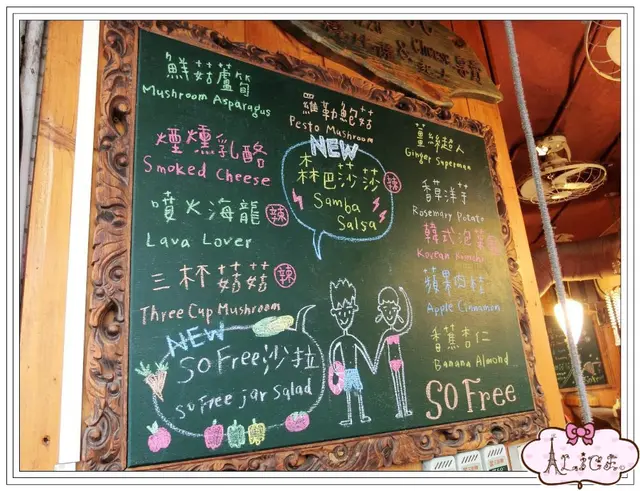 & Cheese
鮮菇蘆筍
Mushroom Asparagus
煙燻乳酪
Smoked Cheese
噴火海龍 辣
Lava Lover
三杯菇菇 辣
Three Cup Mushroom
NEW
SO Free沙拉
SO Free jar Salad
羅勒鮑菇
Pesto Mushroom
NEW
森巴莎莎 辣
Samba
Salsa
薑絲超人
Ginger Superman
香草洋芋
Rosemary Potato
韓式泡菜
Korean Kimchi
蘋果肉桂
Apple Cinnamon
香蕉杏仁
Banana Almond
SO Free
ALICE